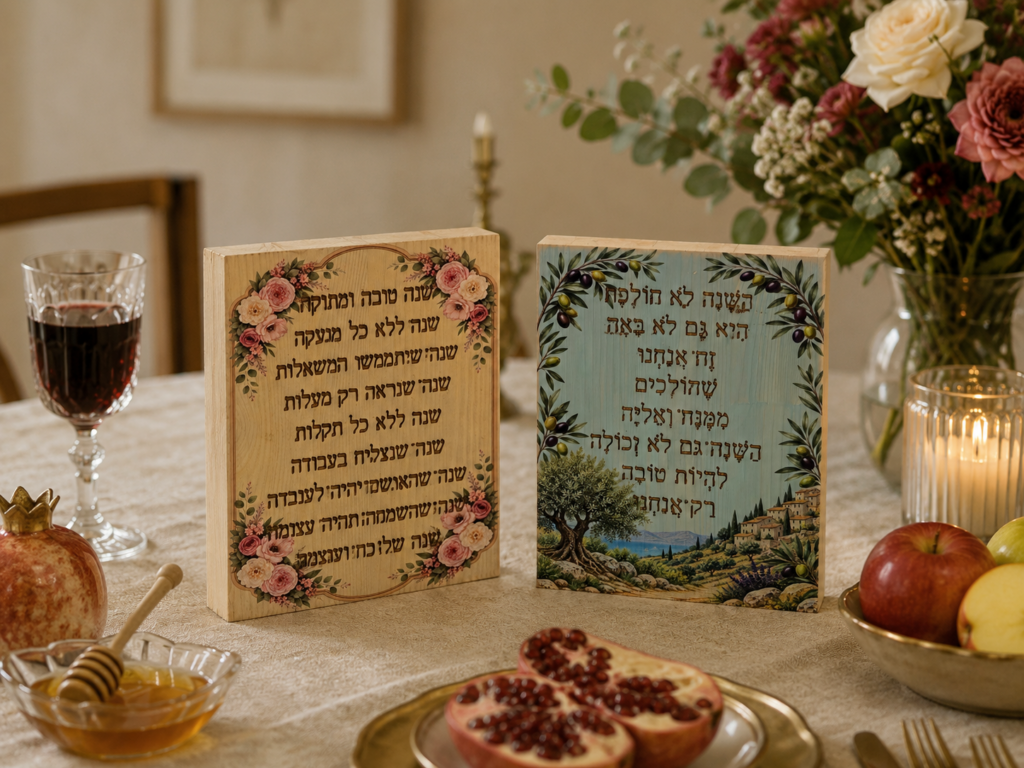 שנה טובה ומתוקה
שנה ללא כל מנעקה
שנה שיתממשו המשאלות
שנה שנראה רק מעלות
שנה ללא כל תקלות
שנה שנצליח בעבודה
שנה שהאושם יהיה לענבדה
שנה שהשמחה תהיה עצמה
שנה של
הַשָּׁנָה לֹא חוֹלֶפֶת
הִיא גַּם לֹא בָּאָה
זֶה אֲנַחְנוּ
שֶׁהוֹלְכִים
מִמֶּנָּה וְאֵלֶיהָ
הַשָּׁנָה גַּם לֹא יְכוֹלָה
לִהְיוֹת טוֹבָה
רַק אֲנַחְנוּ